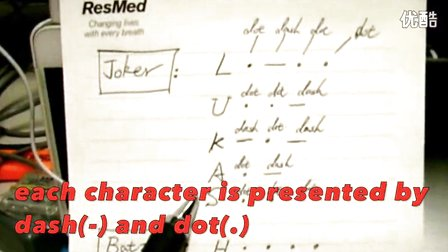 ResMed
Changing lives
with every breath
优酷
dot dash dot dot
Joker :
L . — . .
dot dot dash
U . . —
dash dot dash
K — . —
dot dash
A . —
S
each character is presented by
dash(-) and dot(.)
Bat
H . . . .